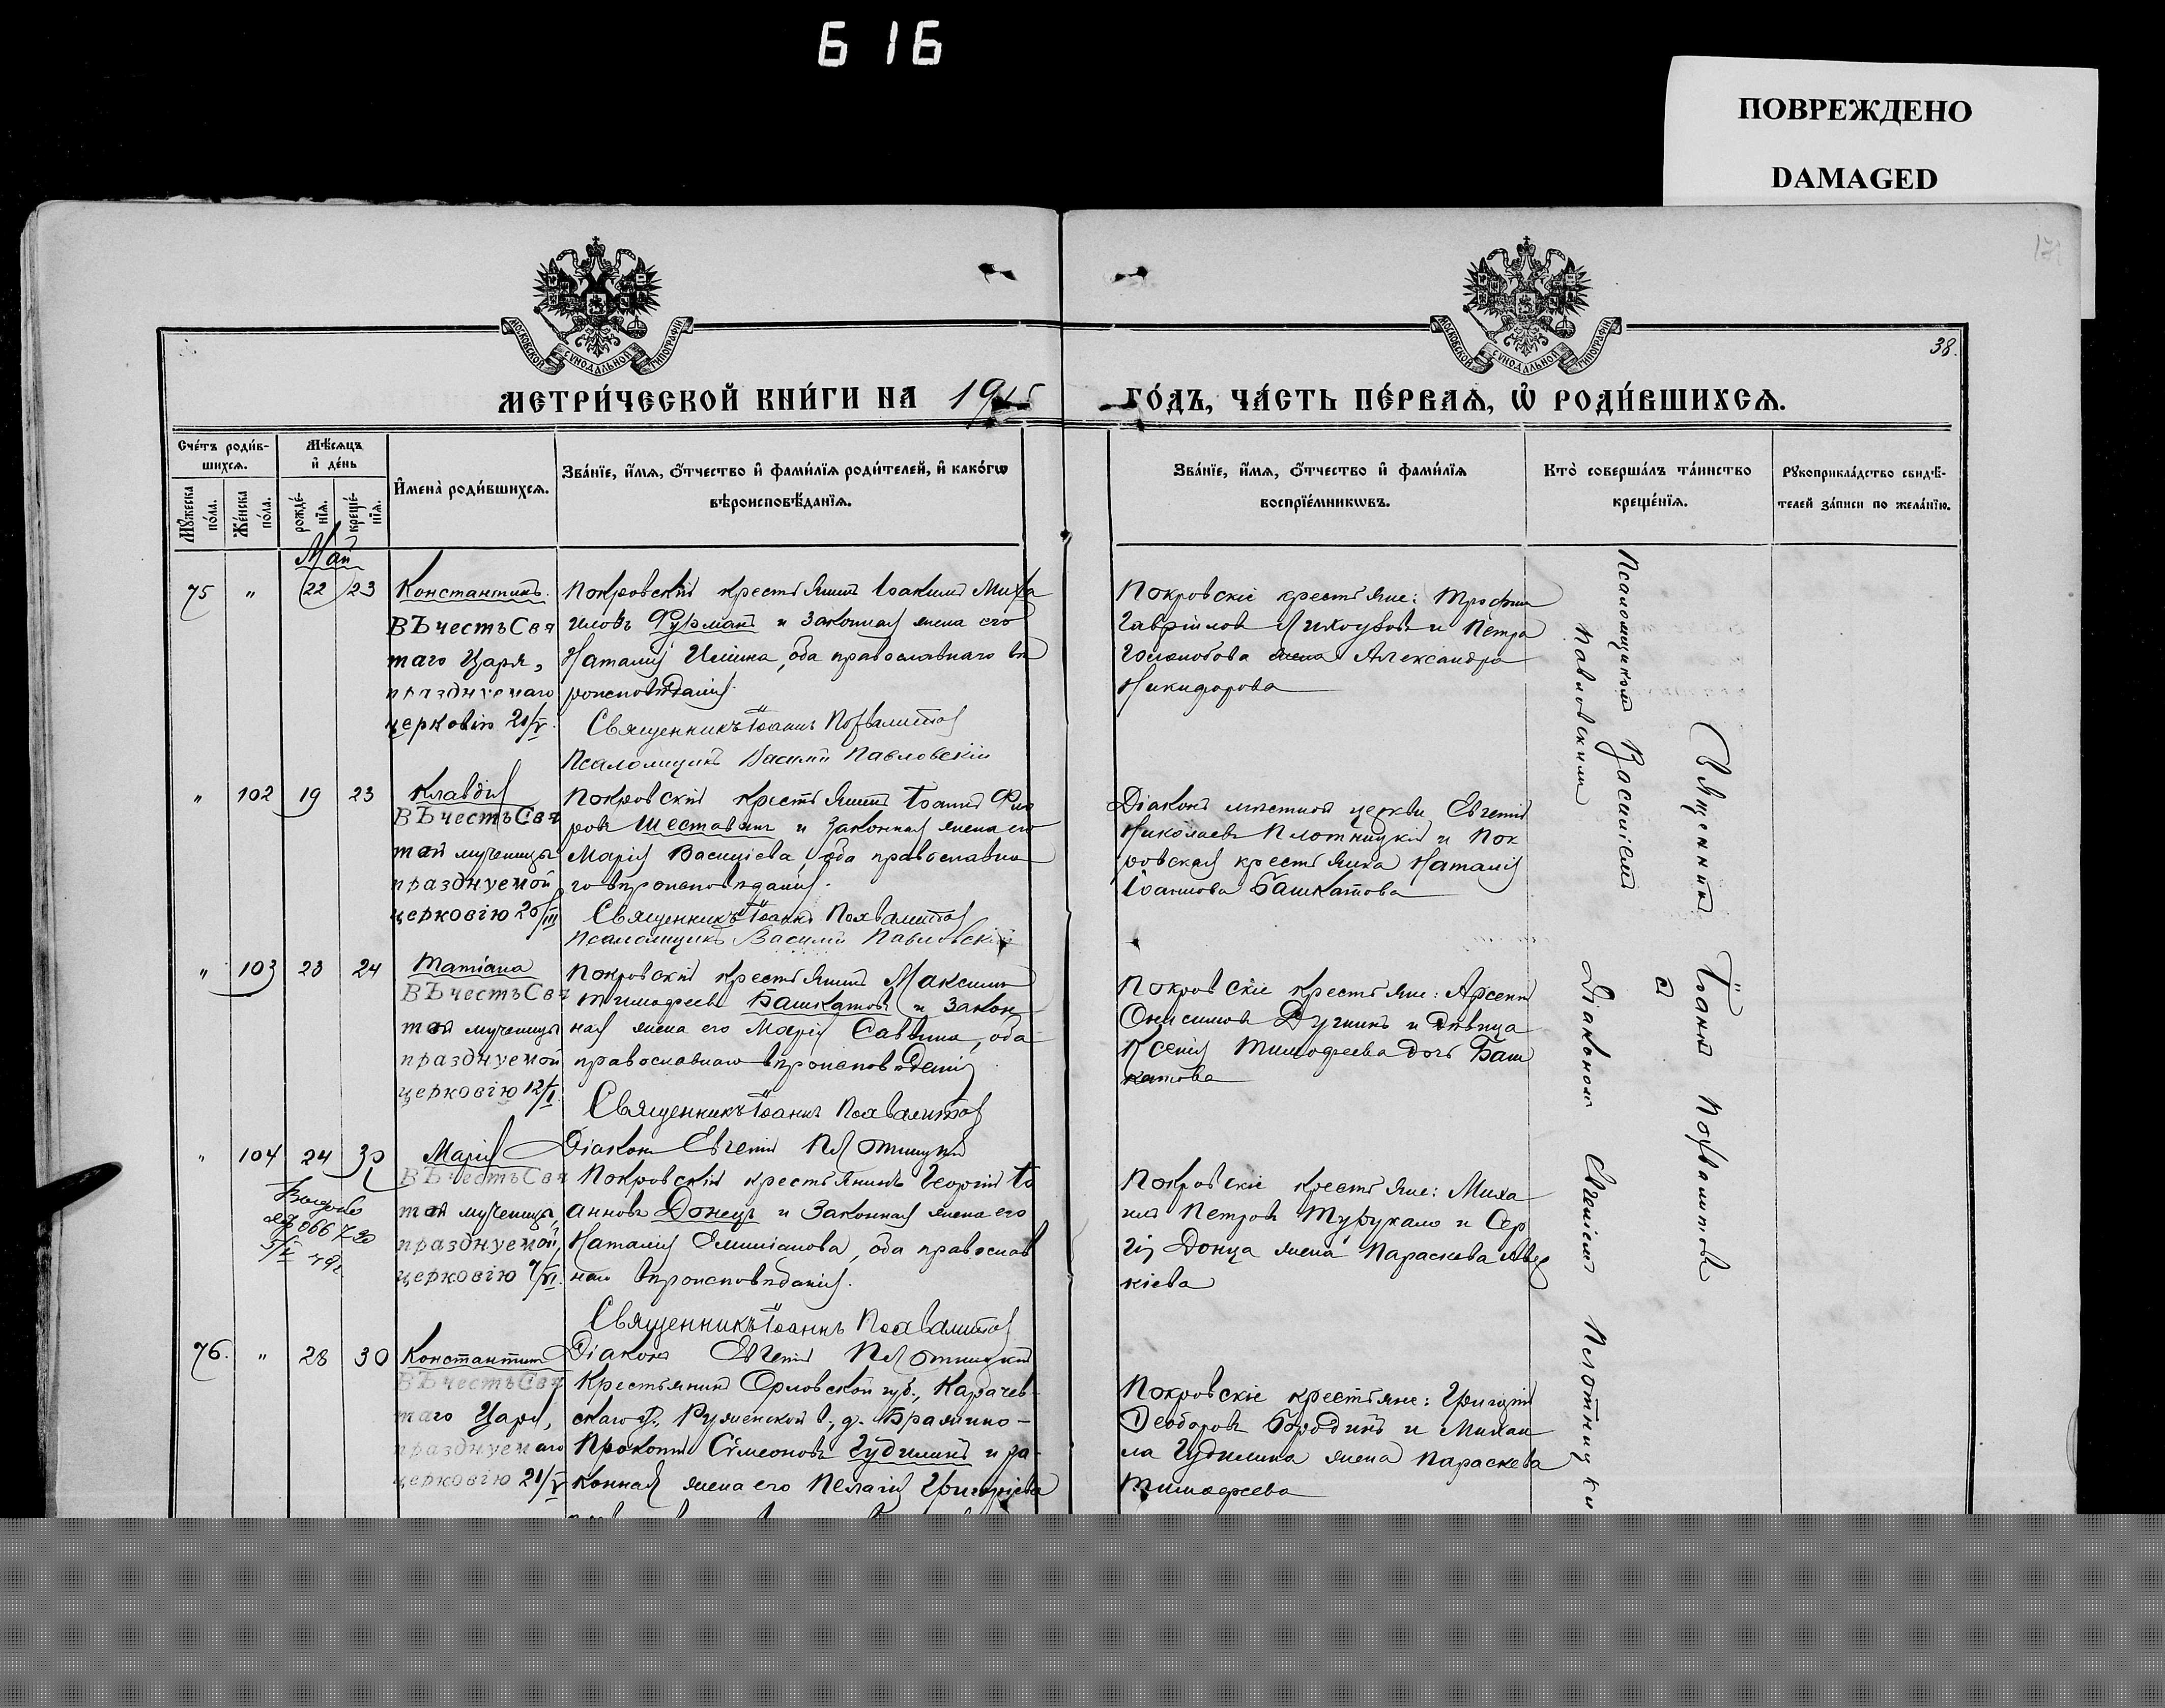 616
ПОВРЕЖДЕНО
DAMAGED
МОСКОВСКОЙ СѴНОДАЛЬНОЙ ТИПОГРАФІИ
МОСКОВСКОЙ СѴНОДАЛЬНОЙ ТИПОГРАФІИ
38.
МЕТРИ́ЧЕСКОЙ КНИ́ГИ НА 1915
ГО́ДЪ, ЧА́СТЬ ПЕ́РВАѦ, Ѡ҆ РОДИ́ВШИХСѦ.
Сче́тъ роди́в-
шихсѧ.
Мꙋ́жеска по́ла.
Же́нска по́ла.
Мѣ́сѧцъ
и҆ де́нь
рожде́-
нїѧ.
креще́-
нїѧ.
И҆мена̀ роди́вшихсѧ.
Зва́нїе, и҆́мѧ, ѻ҆́тчество и҆ фами́лїѧ роди́телей, и҆ како́гѡ
вѣроисповѣ́данїѧ.
Зва́нїе, и҆́мѧ, ѻ҆́тчество и҆ фами́лїѧ
воспрїе́мникѡвъ.
Кто̀ соверша́лъ та́инство
креще́нїѧ.
Рꙋкоприкла́дство свидѣ́-
телей за́писи по жела́нїю.
Май
75 " 22 23
Константинъ.
ВЪ честь Свя
таго Царя,
празднуемаго
церковію 21/V.
Покровскій крестьянинъ Іоакимъ Миха
иловъ Фурманъ и законная жена его
Наталія Ильина, оба православнаго вѣ
роисповѣданія.
Священникъ Іоаннъ Похвалитов
Псаломщикъ Василій Павловскій
Покровскіе крестьяне: Трофим
Гавріиловъ и Петра
Голополова жена Александра
Никифорова
Псаломщикомъ Василіемъ
Павловскимъ
" 102 19 23
Клавдія
ВЪ честь Свя
той мученицы
празднуемой
церковію 20/III
Покровскій крестьянинъ Іоаннъ Фео
ровъ Шестовъ и законная жена его
Марія Васильева, оба православна
го вѣроисповѣданія.
Священникъ Іоаннъ Похвалитов
Псаломщикъ Василій Павловскій
Діаконъ мѣстной церкви Евгеній
Николаевъ Плотницкій и Пок
ровская крестьянка Наталія
Іоаннова Башкатова
" 103 23 24
Татіана
ВЪ честь Свя
той мученицы
празднуемой
церковію 12/I.
Покровскій крестьянинъ Максимъ
Тимофеевъ Башкатовъ и закон
ная жена его Марія Саввина, оба
православнаго вѣроисповѣданія
Священникъ Іоаннъ Похвалитов
Діаконъ Евгеній Плотницкій
Покровскіе крестьяне: Арсеній
Онисимовъ Дугинъ и дѣвица
Ксенія Тимофеева дочь Баш
катова
Священникъ Іоаннъ Похвалитовъ
Съ
Діакономъ Евгеніемъ Плотницки
" 104 24 30
Марія
ВЪ честь Свя
той мученицы,
празднуемой,
церковію 7/VI.
Покровскій крестьянинъ Георгій Іо
анновъ Донецъ и законная жена его
Наталія Емиліанова, оба православ
наго вѣроисповѣданія.
Священникъ Іоаннъ Похвалитов
Діаконъ Евгеній Плотницкій
Покровскіе крестьяне: Миха
илъ Петровъ Турукало и Сер
гія Донца жена Параскева Авер
кіева
76. " 28 30
Константинъ
ВЪ честь Свя
таго Царя,
празднуемаго
церковію 21/V
Крестьянинъ Орловской губ., Карачев-
скаго у., Руженской в., д. Бражино-
Прокопій Сѵмеоновъ Гудилинъ и за-
конная жена его Пелагія Григоріева
Покровскіе крестьяне: Григорій
Ѳеодоровъ Бородинъ и Михаи
ла Гудилина жена Параскева
Тимофеева